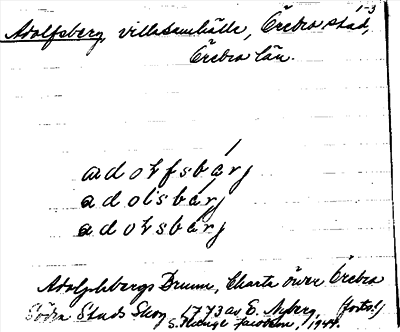 1-3
Adolfsberg, villasamhälle, Örebro stad,
Örebro län.
adolfsbárj
adolsbárj
adolsbárj
Adolphsbergs Brunn, Charta öwer Örebro
Södra Stads Skog 1773 av E. Nyberg. (forts.)
S. Jacobson, 1944.